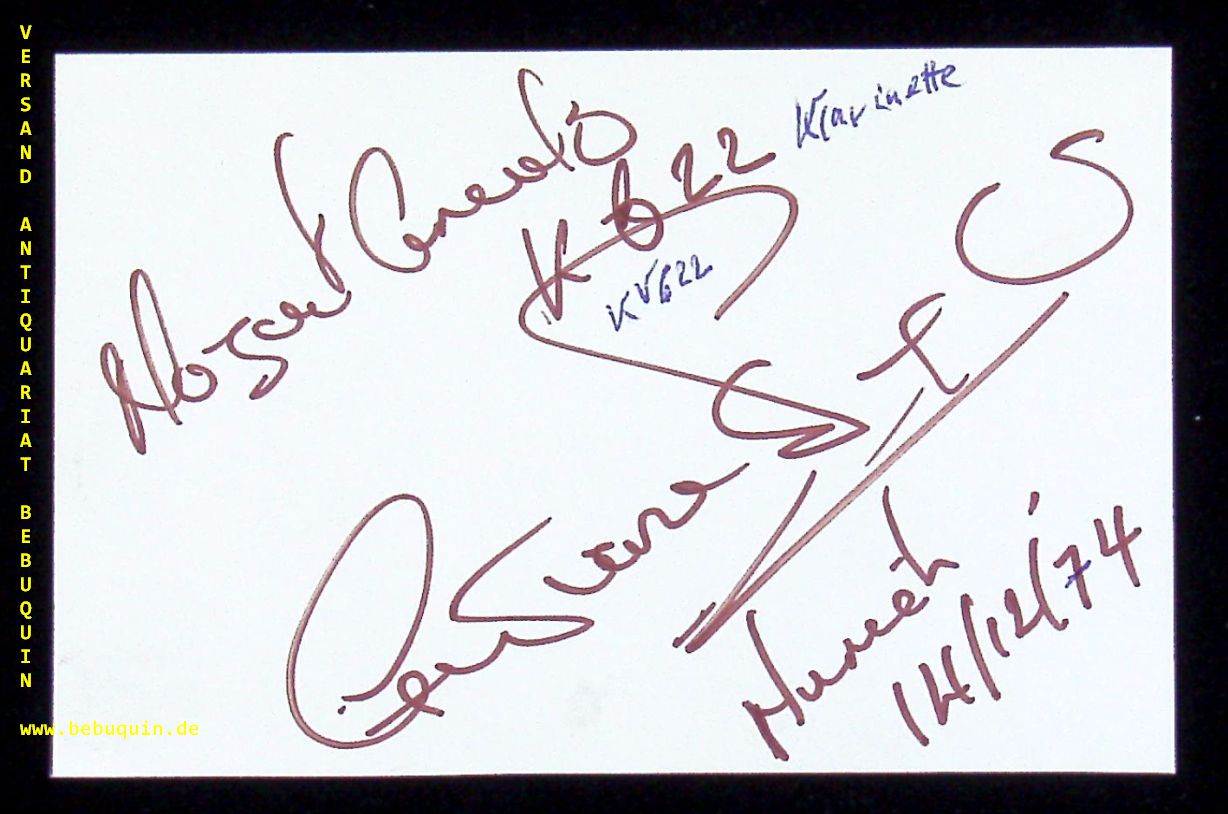 VERSAND ANTIQUARIAT BEBUQUIN
www.bebuquin.de
Mozart Concerto
K 622 Klarinette
KV622
Munich
14/12/74